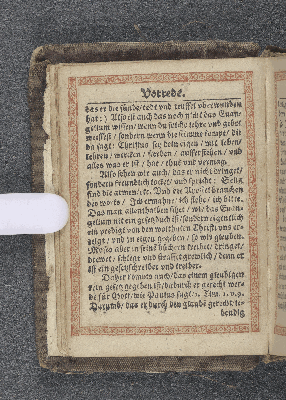 Vorrede.
das er die sünde/ tod vnd teuffel vberwunden
hat: Also ist auch das noch nicht das Euan-
gelium wissen/ wenn du solche lehre vnd gebot
weissest/ sondern wenn die stimme kompt/ die
da sagt: Christus sey dein eigen/ mit leben/
lehren/ wercken/ sterben/ aufferstehen/ vnd
alles was er ist/ hat/ thut vnd vermag.
Also sehen wir auch/ das er nicht dringet/
sondern freundlich locket/ vnd spricht: Selig
sind die armen/ etc. Vnd die Apostel brauchen
des worts/ Ich ermahne/ ich flehe/ ich bitte.
Das man allenthalben sihet/ wie das Euan-
gelium nit ein gesetzbuch ist/ sondern eigentlich
ein predigt von den wolthaten Christi vns er-
zeigt/ vnd zu eigen gegeben/ so wir glauben.
Moses aber in seinen büchern treibet/ dringet/
drewet/ schlegt vnd straffet grewlich/ denn er
ist ein gesetzschreiber vnd treiber.
Daher kompts auch/ das einem gleubigen
kein gesetz gegeben ist/ dadurch er gerecht wer-
de für Gott/ wie Paulus sagt/ 1. Tim. 1. v. 9.
Darumb/ das er durch den glauben gerecht/ le-
bendig